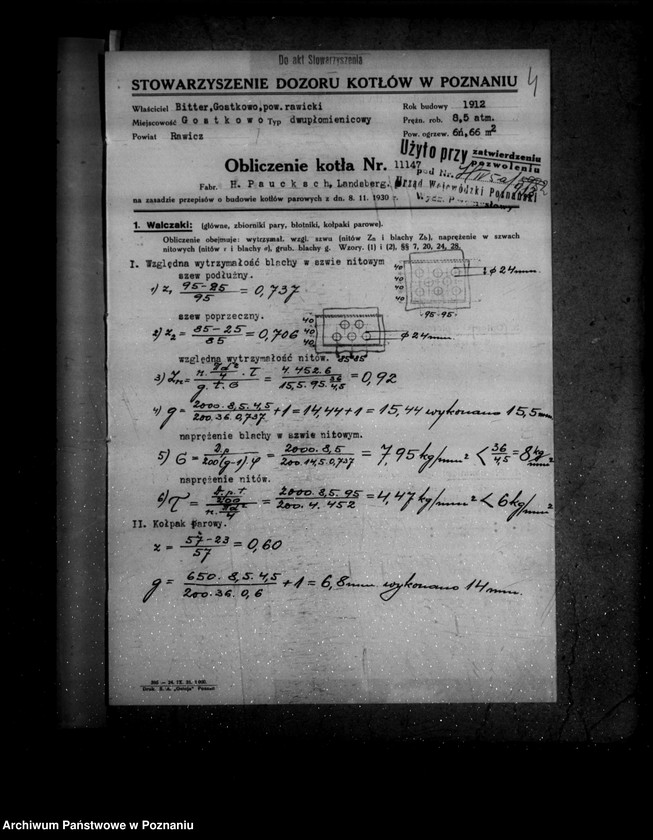 Do akt Stowarzyszenia
4
STOWARZYSZENIE DOZORU KOTŁÓW W POZNANIU
Właściciel Bitter, Gostkowo, pow. rawicki
Rok budowy 1912
Miejscowość Gostkowo Typ dwupłomienicowy
Prężn. rob. 8,5 atm.
Powiat Rawicz
Pow. ogrzew. 66,66 m2
Użyto przy zatwierdzeniu
pozwoleniu
pod Nr.
Urząd Wojewódzki Poznański
Obliczenie kotła Nr. 11147
Fabr. H. Paucksch, Landsberg.
na zasadzie przepisów o budowie kotłów parowych z dn. 8. 11. 1930 r.
1. Walczaki: (główne, zbiorniki pary, błotniki, kołpaki parowe).
Obliczenie obejmuje: wytrzymał. wzgl. szwu (nitów Zn i blachy Zb), naprężenie w szwach
nitowych (nitów τ i blachy σ), grub. blachy g. Wzory. (1) i (2), §§ 7, 20, 24, 28.
I. Względna wytrzymałość blachy w szwie nitowym
szew podłużny.
1) z1 = 95-25 / 95 = 0,737
40
40
40
φ 24 mm.
95-95
szew poprzeczny.
2) z2 = 85-25 / 85 = 0,706
40
40
40
φ 24 mm.
85 85
względna wytrzymałość nitów.
3) Zn = n. πd² / 4 . τ / g. t. σ = 4. 452. 6 / 15,5. 95. 36 / 4,5 = 0,92
4) g = 2000. 8,5. 4,5 / 200. 36. 0,737 + 1 = 14,44 + 1 = 15,44 wykonano 15,5 mm
naprężenie blachy w szwie nitowym.
5) σ = D.p / 200 (g-1). φ = 2000. 8,5 / 200. 14,5. 0,737 = 7,95 kg/mm² < 36 / 4,5 = 8 kg/mm²
naprężenie nitów.
6) τ = D.p.t / 200 / n. πd² / 4 = 2000. 8,5. 95 / 200. 4. 452 = 4,47 kg/mm² < 6 kg/mm²
II. Kołpak parowy.
z = 57-23 / 57 = 0,60
g = 650. 8,5. 4,5 / 200. 36. 0,6 + 1 = 6,8 mm. wykonano 14 mm.
Druk. S. A. „Ostoja" Poznań
Archiwum Państwowe w Poznaniu